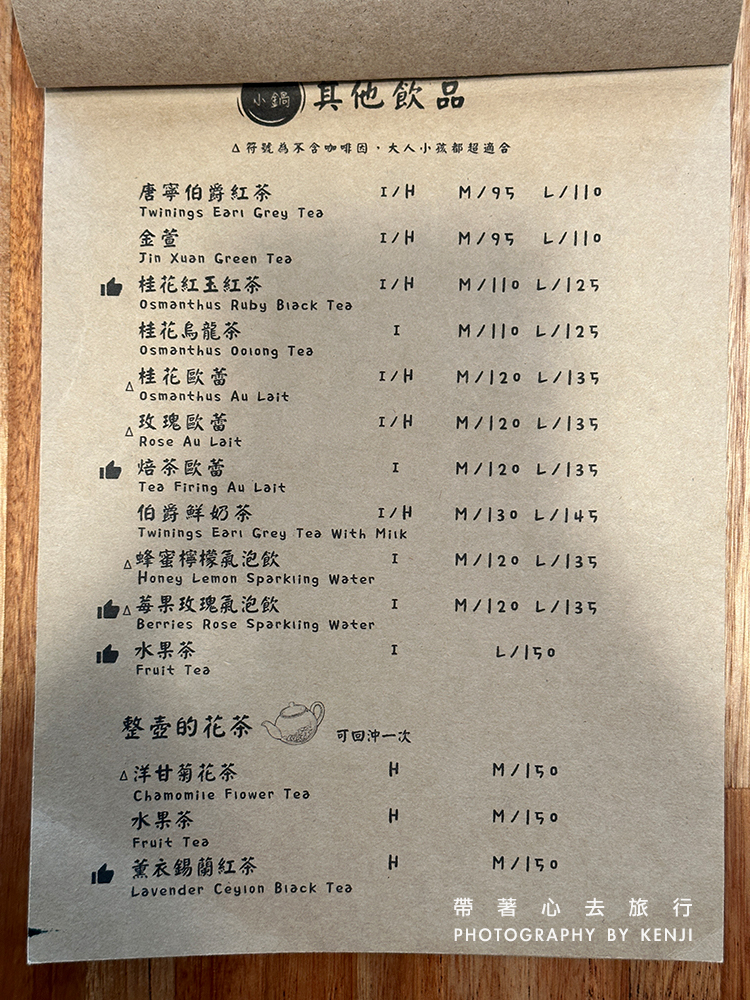 小鍋 其他飲品
△符號為不含咖啡因，大人小孩都超適合
唐寧伯爵紅茶 I/H M/95 L/110
Twinings Earl Grey Tea
金萱 I/H M/95 L/110
Jin Xuan Green Tea
桂花紅玉紅茶 I/H M/110 L/125
Osmanthus Ruby Black Tea
桂花烏龍茶 I M/110 L/125
Osmanthus Oolong Tea
△桂花歐蕾 I/H M/120 L/135
Osmanthus Au Lait
△玫瑰歐蕾 I/H M/120 L/135
Rose Au Lait
焙茶歐蕾 I M/120 L/135
Tea Firing Au Lait
伯爵鮮奶茶 I/H M/130 L/145
Twinings Earl Grey Tea With Milk
△蜂蜜檸檬氣泡飲 I M/120 L/135
Honey Lemon Sparkling Water
△莓果玫瑰氣泡飲 I M/120 L/135
Berries Rose Sparkling Water
水果茶 I L/150
Fruit Tea
整壺的花茶 可回沖一次
△洋甘菊花茶 H M/150
Chamomile Flower Tea
水果茶 H M/150
Fruit Tea
薰衣錫蘭紅茶 H M/150
Lavender Ceylon Black Tea
帶著心去旅行
PHOTOGRAPHY BY KENJI